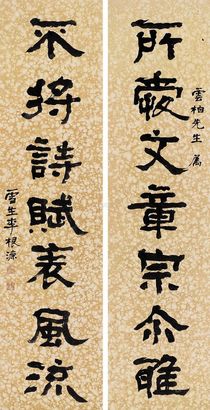 雲柏先生屬
所愛文章宗尒雅
不將詩賦表風流
雪生李根源